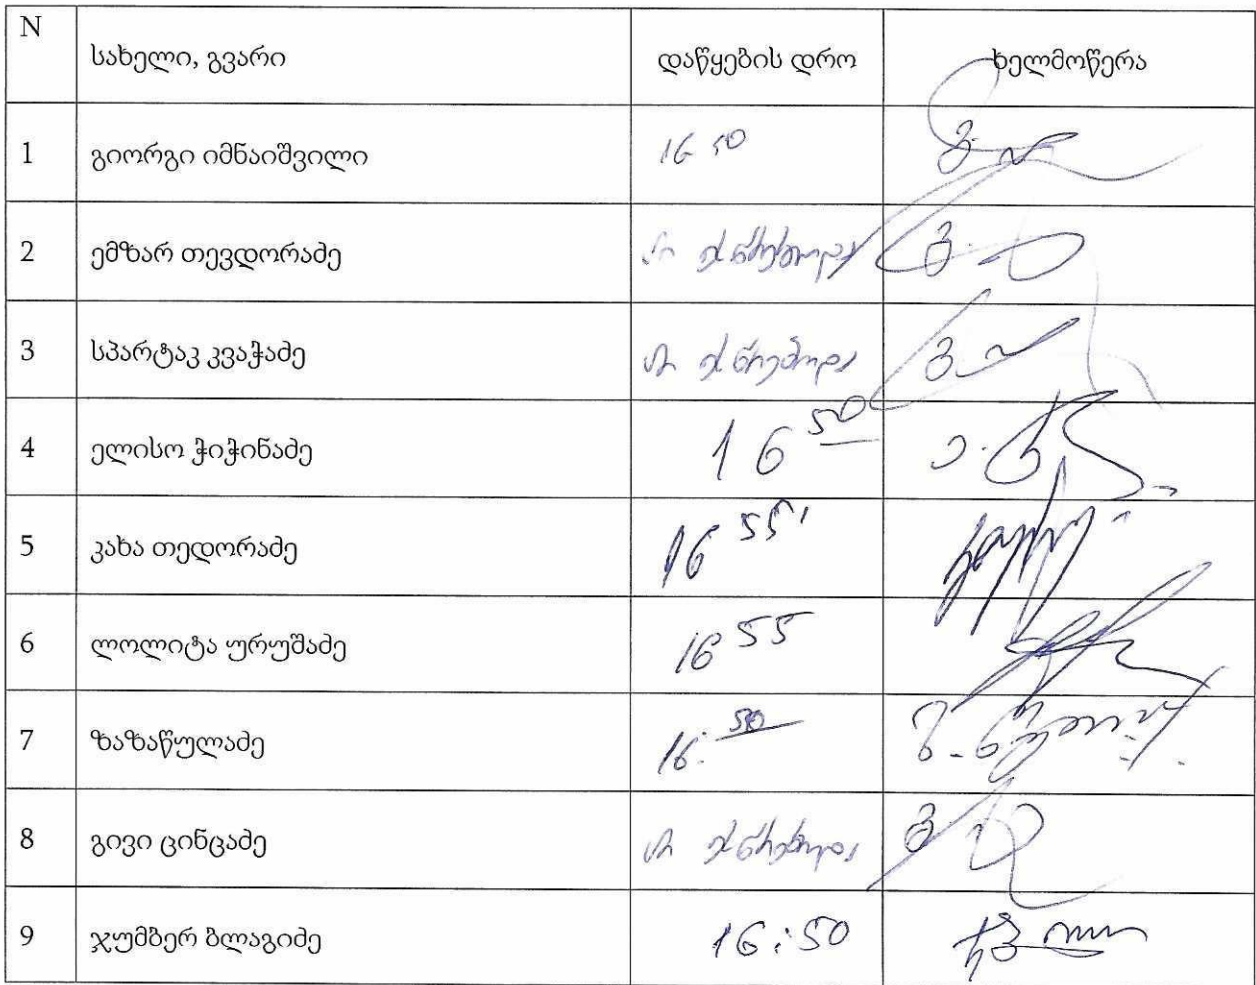 N სახელი, გვარი დაწყების დრო ხელმოწერა
1 გიორგი იმნაიშვილი 16 50
2 ემზარ თევდორაძე არ ესწრებოდა
3 სპარტაკ კვაჭაძე არ ესწრებოდა
4 ელისო ჭიჭინაძე 16 50
5 კახა თედორაძე 16 55'
6 ლოლიტა ურუშაძე 16 55
7 ზაზაწულაძე 16: 50
8 გივი ცინცაძე არ ესწრებოდა
9 ჯუმბერ ბლაგიძე 16:50